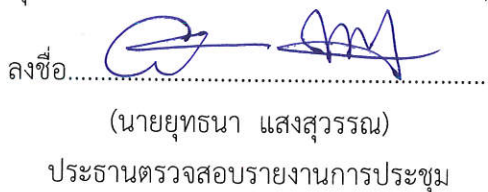 ลงชื่อ................................................................
(นายยุทธนา แสงสุวรรณ)
ประธานตรวจสอบรายงานการประชุม